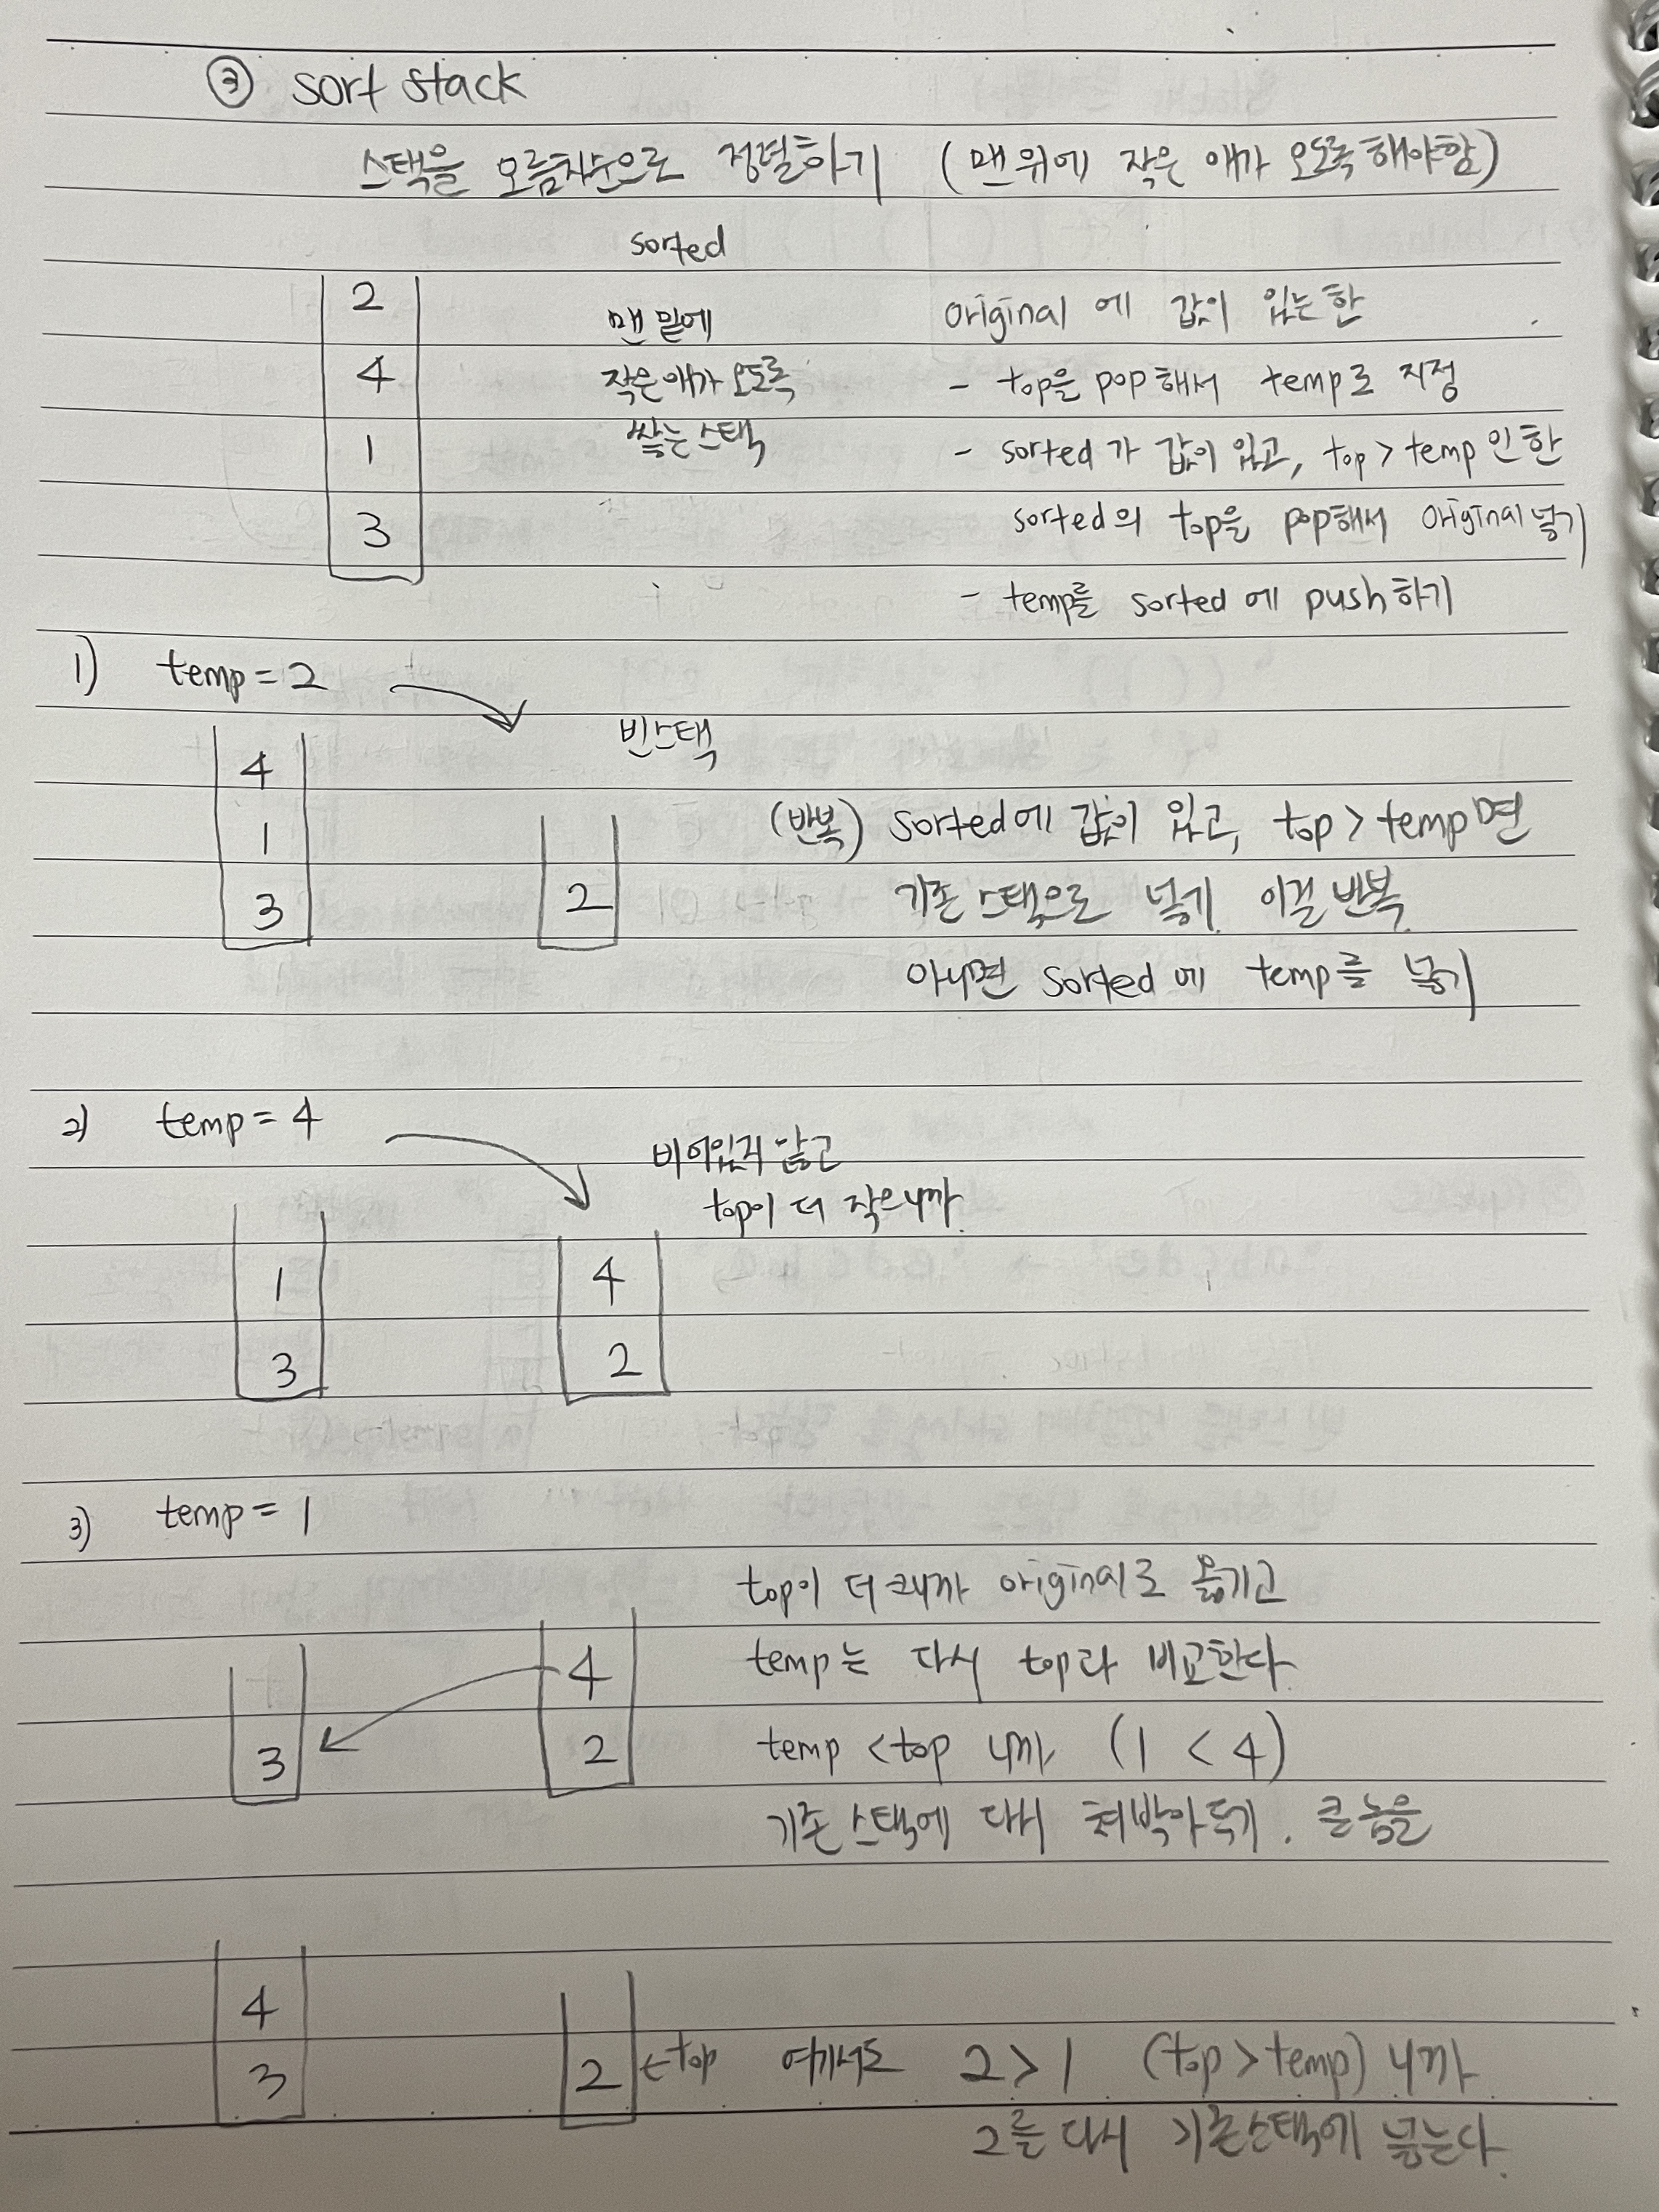 ③ sort stack
스택을 오름차순으로 정렬하기 (맨 위에 작은 애가 오도록 해야함)
sorted
2
4
1
3
맨 밑에
작은애가 오도록
쌓는 스택
original 에 값이 있는 한
- top을 pop해서 temp로 지정
- sorted가 값이 있고, top > temp 인 한
sorted의 top을 pop해서 original 넣기
- temp를 sorted에 push하기
1) temp = 2
빈스택
4
1
3
2
(반복) sorted에 값이 있고, top > temp면
기존 스택으로 넣기. 이걸 반복.
아니면 sorted에 temp를 넣기
2) temp = 4
비어있지 않고
top이 더 작으니까.
1
3
4
2
3) temp = 1
top이 더 크니까 original로 옮기고
temp는 다시 top과 비교한다.
3
4
2
temp < top 니까 (1 < 4)
기존 스택에 다시 쳐박아두기. 큰 놈을
4
3
2 ← top 여기서도 2 > 1 (top > temp) 니까
2를 다시 기존스택에 넣는다.